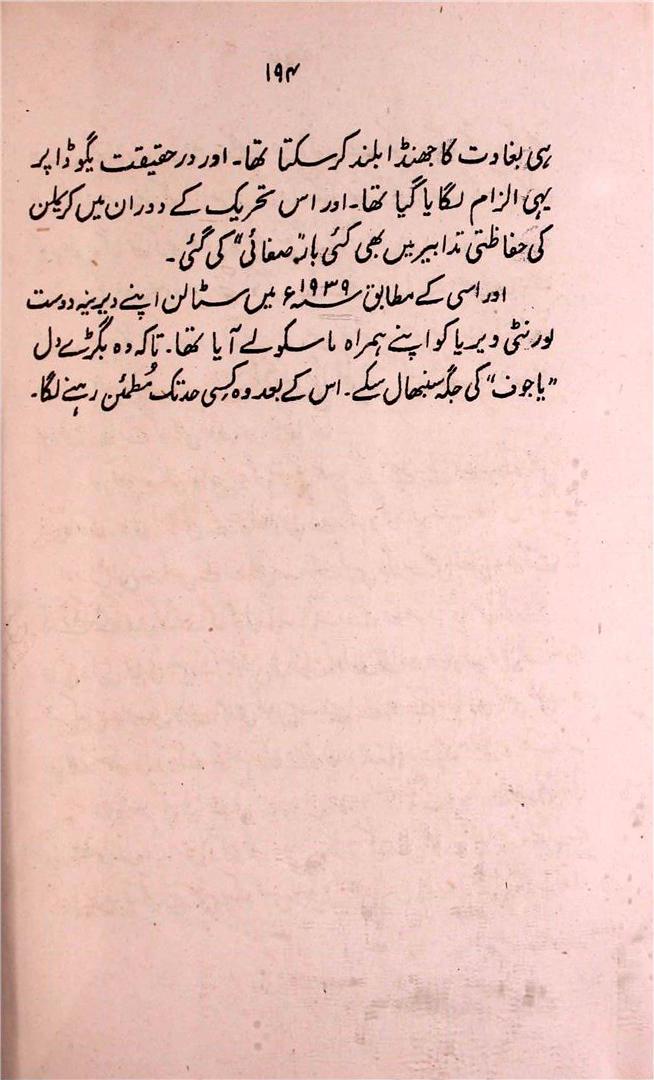 ۱۹۴
ہی بغاوت کا جھنڈا بلند کر سکتا تھا۔ اور درحقیقت یگوڈا پر
یہی الزام لگایا گیا تھا۔ اور اس تحریک کے دوران میں کریملن
کی حفاظتی تدابیر میں بھی کئی بار ”صفائی“ کی گئی۔
اور اسی کے مطابق ۱۹۳۹ء میں سٹالن اپنے دیرینہ دوست
لورنٹی و بیریا کو اپنے ہمراہ ماسکو لے آیا تھا۔ تاکہ وہ بگڑے دل
”یاجوف“ کی جگہ سنبھال سکے۔ اس کے بعد وہ کسی حد تک مُطمئن رہنے لگا۔